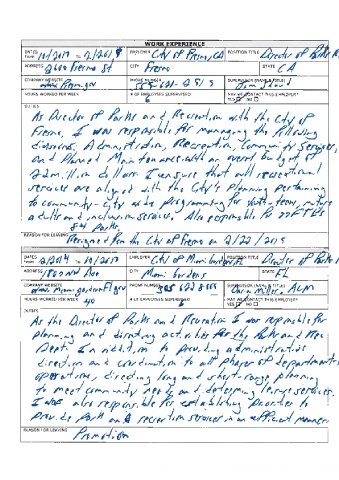 WORK EXPERIENCE
DATES From 10/2017 To 2/2019 EMPLOYER City of Fresno, CA POSITION TITLE Director of Parks &
ADDRESS 2600 Fresno St CITY Fresno STATE CA
COMPANY WEBSITE PHONE NUMBER SUPERVISOR (NAME & TITLE)
HOURS WORKED PER WEEK # OF EMPLOYEES SUPERVISED 6 MAY WE CONTACT THIS EMPLOYER? YES NO
DUTIES
As Director of Parks and Recreation with the City of
Fresno, I was responsible for managing the following
divisions, Administration, Recreation, Community Services,
and Planned Maintenance with an overall budget of
million dollars. I ensure that all recreational
services are aligned with the City's Planning pertaining
to community-City wide programming for youth, teen, mature
adults and inclusion services. Also responsible for
Parks.
REASON FOR LEAVING Resigned for the City of Fresno on 2/22/2019
DATES From /2014 To 10/2017 EMPLOYER City of Miami Gardens, FL POSITION TITLE Director of Parks &
ADDRESS CITY Miami Gardens STATE FL
COMPANY WEBSITE PHONE NUMBER 305 622 SUPERVISOR (NAME & TITLE) Miller, ACM
HOURS WORKED PER WEEK 40 # OF EMPLOYEES SUPERVISED 6 MAY WE CONTACT THIS EMPLOYER? YES NO
DUTIES
As the Director of Parks and Recreation I was responsible for
planning and directing activities for the Parks and Rec
Dept. In addition to providing administrative
direction and coordination to all phases of departmental
operations, directing long and short-range planning
to meet community needs and determine services.
I was also responsible for establishing priorities to
provide Park and recreation services in an efficient manner
REASON FOR LEAVING
Promotion